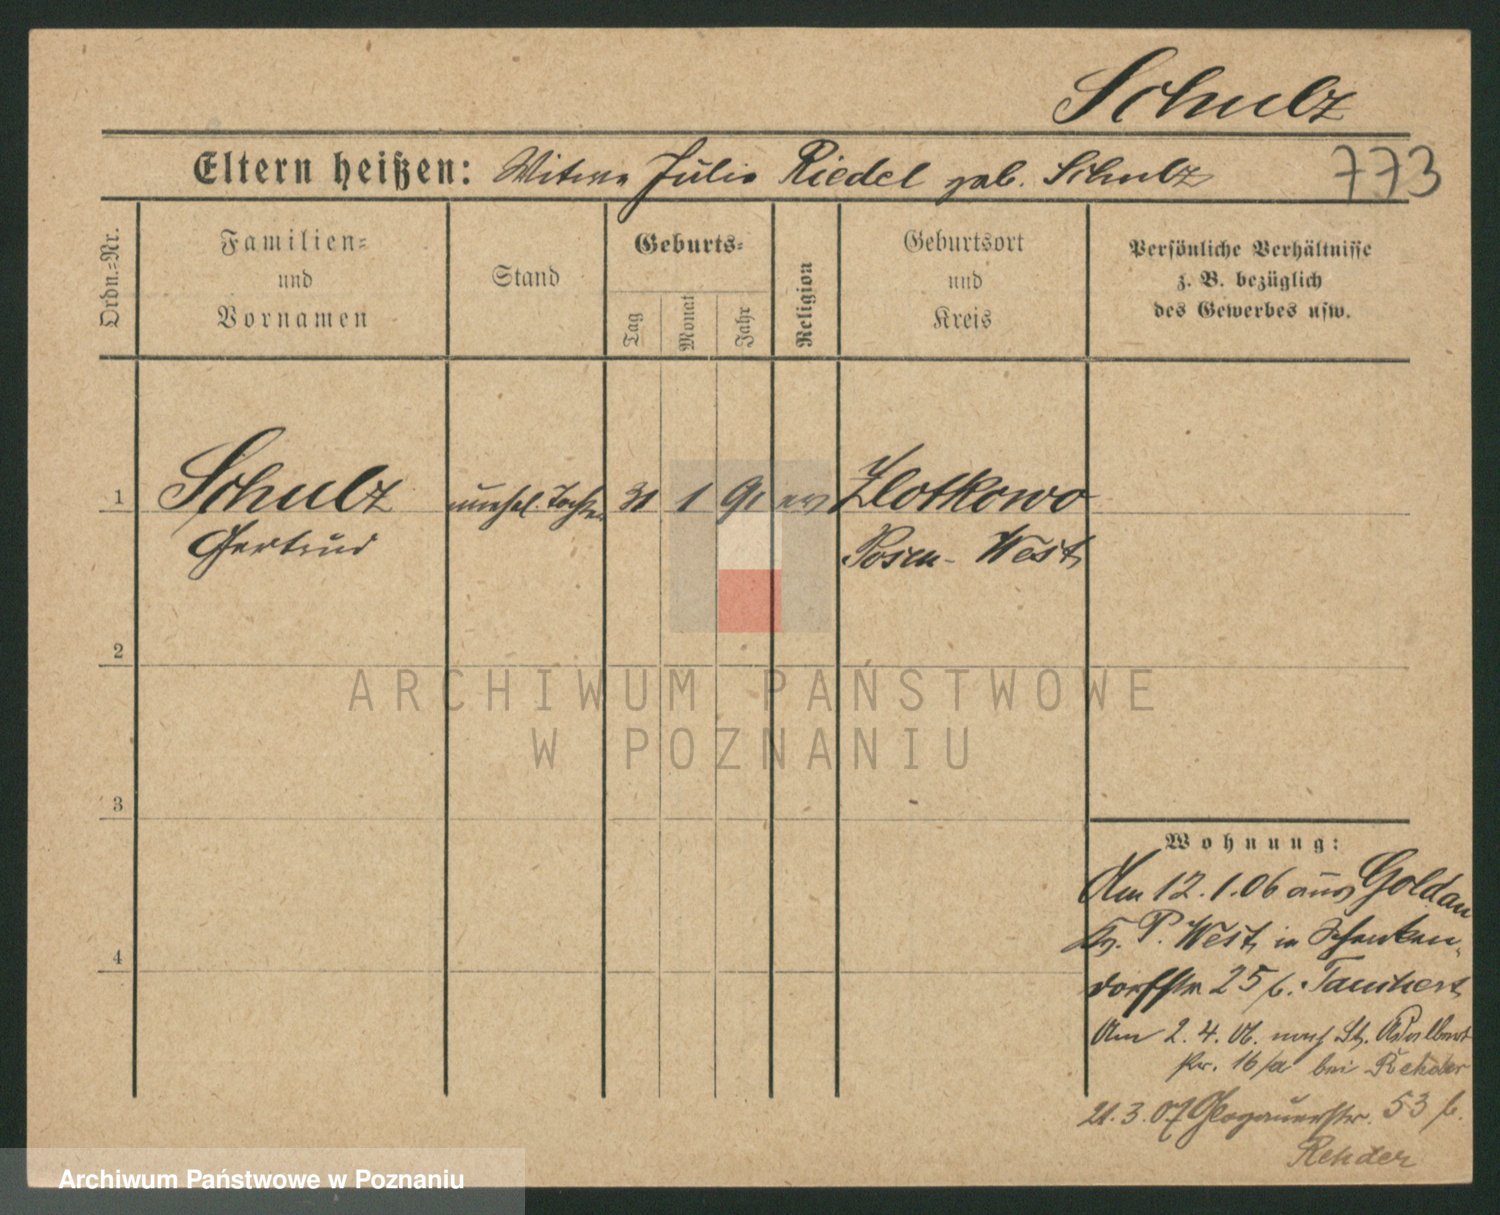 Schulz
Eltern heißen: Witwe Julie Riedel geb. Schulz 773
Ordn.-Nr.
Familien-
und
Vornamen
Stand
Geburts-
Tag
Monat
Jahr
Religion
Geburtsort
und
Kreis
Persönliche Verhältnisse
z. B. bezüglich
des Gewerbes usw.
1 Schulz unehel. Tochter 31 1 91 ev Zlotkowo
Gertrud Posen-West
2
3
4
Wohnung:
Am 12.1.06 aus Goldau
Kr. P. West, in Schenken-
dorffstr 25 b.
Am 2.4.06. nach St. Adalbert
Nr. 16/a bei Rehder
21.3.07 Glogauerstr. 53 b.
Rehder
ARCHIWUM PAŃSTWOWE
W POZNANIU
Archiwum Państwowe w Poznaniu